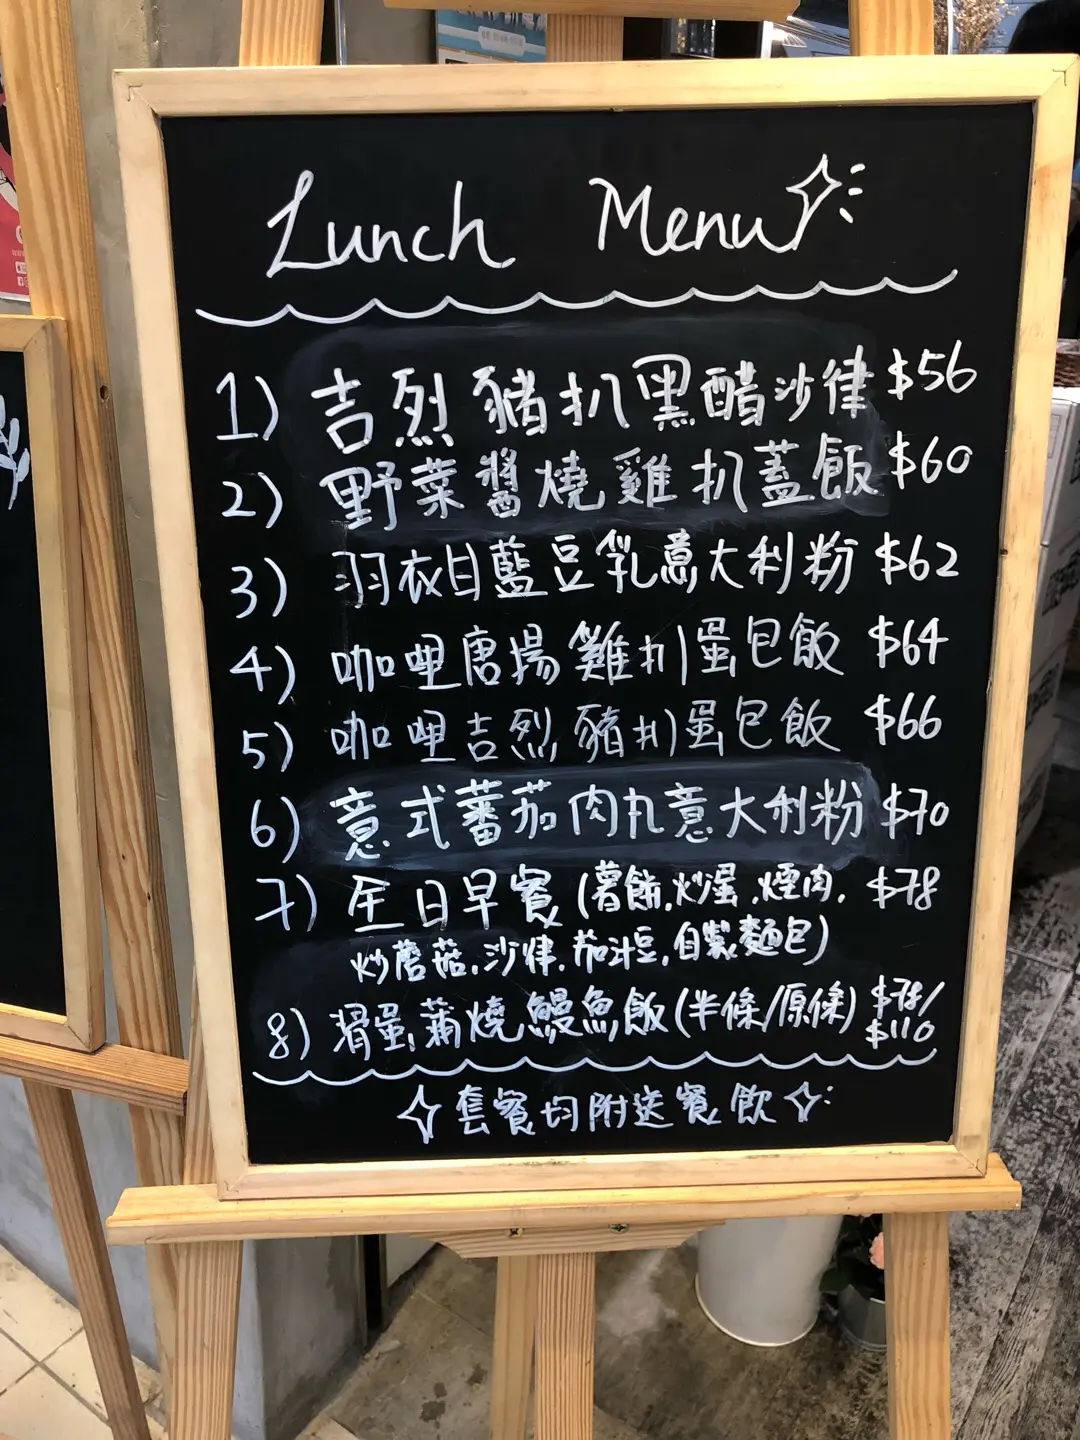 Lunch Menu
1) 吉烈豬扒黑醋沙律 $56
2) 野菜醬燒雞扒蓋飯 $60
3) 羽衣甘藍豆乳意大利粉 $62
4) 咖哩唐揚雞扒蛋包飯 $64
5) 咖哩吉烈豬扒蛋包飯 $66
6) 意式蕃茄肉丸意大利粉 $70
7) 全日早餐 (薯餅.炒蛋.煙肉. $78
炒蘑菇.沙律.茄汁豆.自製麵包)
8) 滑蛋蒲燒鰻魚飯 (半條/原條) $78/
$110
套餐均附送餐飲